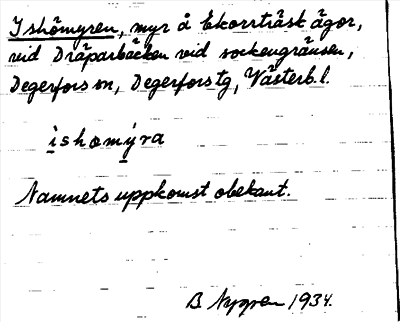 Ishömyren, myr å Ekorrträsk ägor,
vid Dråparbäcken vid sockengränsen,
Degerfors sn, Degerfors tg, Västerb. l.
ishomýra
Namnets uppkomst obekant.
B Nygren 1934.